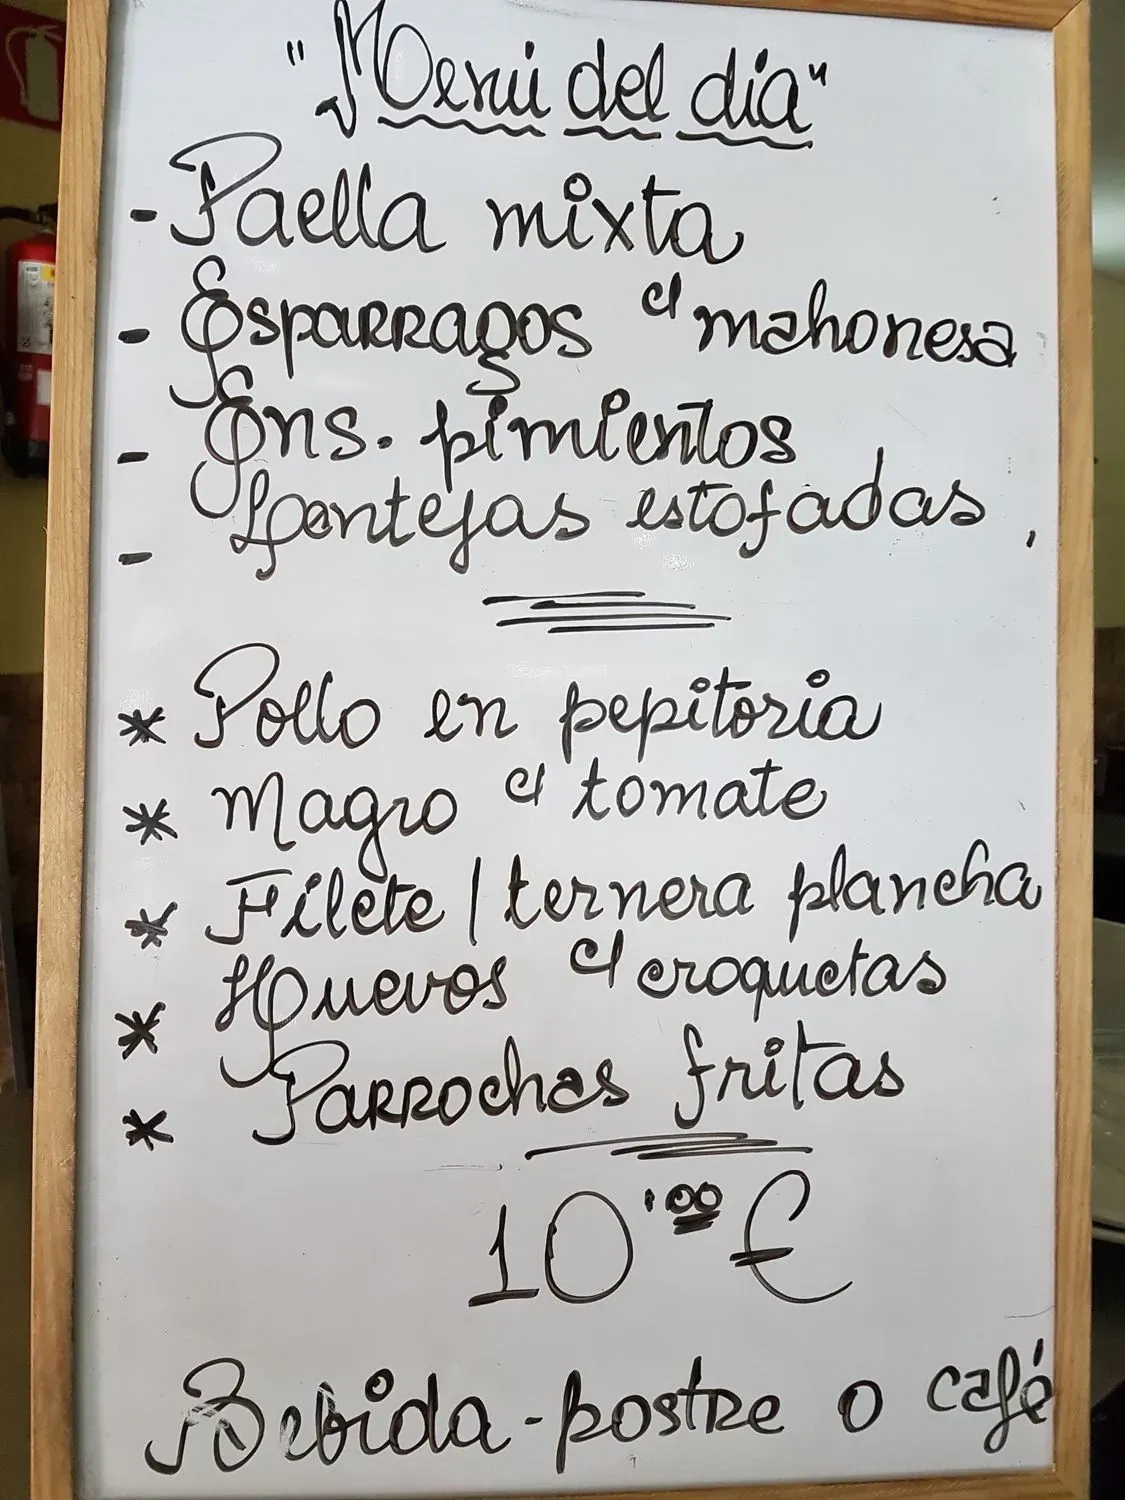 "Menú del día"
- Paella mixta
- Esparragos c/ mahonesa
- Ens. pimientos
- Lentejas estofadas
* Pollo en pepitoria
* Magro c/ tomate
* Filete / ternera plancha
* Huevos c/ croquetas
* Parrochas fritas
10'00 €
Bebida - postre o café